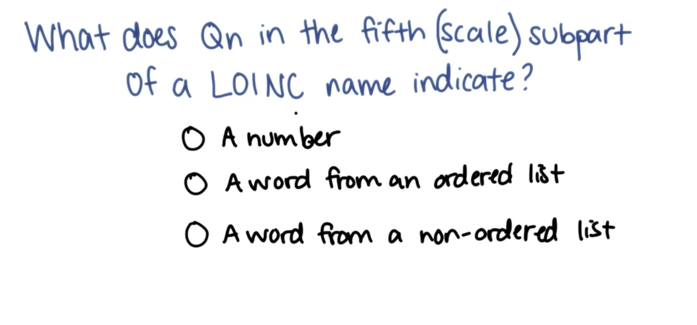 What does Qn in the fifth (scale) subpart
of a LOINC name indicate?
A number
A word from an ordered list
A word from a non-ordered list